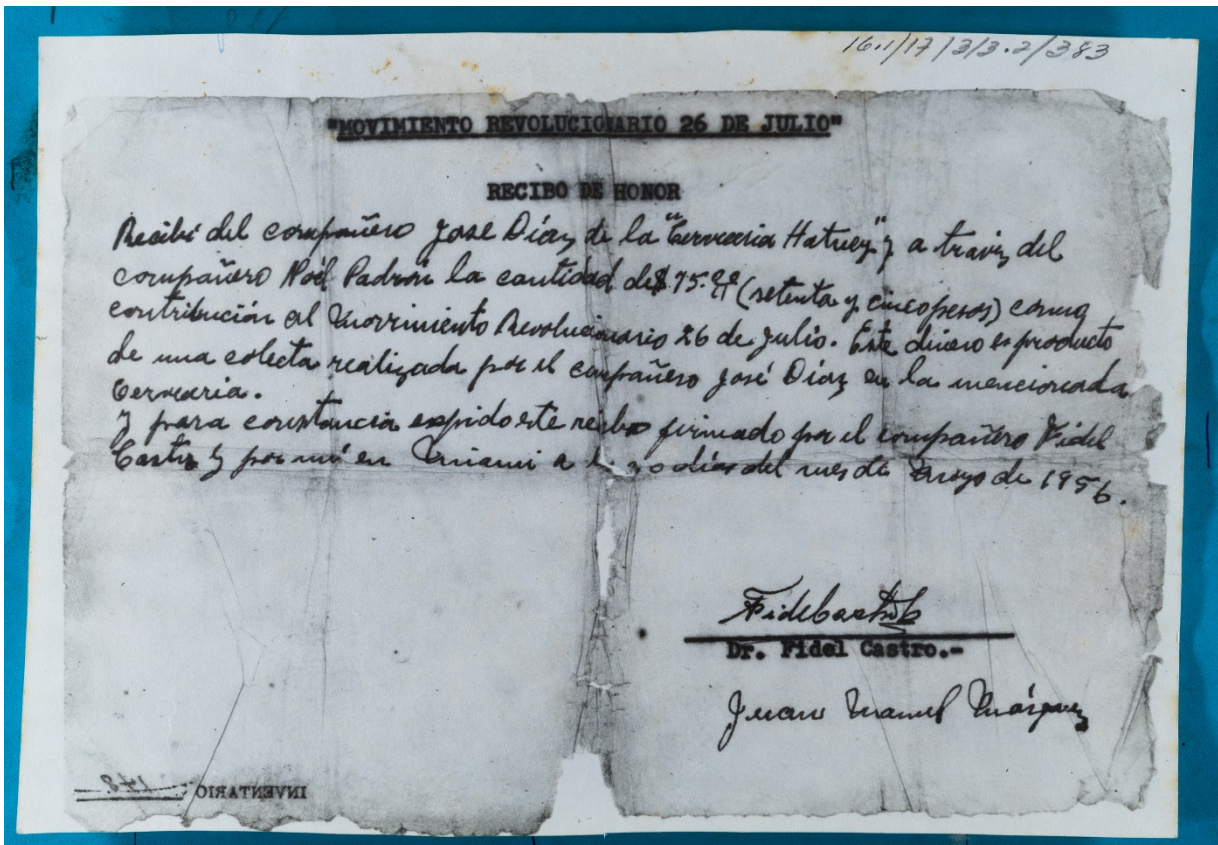 16.1/17/3/3.2/383
"MOVIMIENTO REVOLUCIONARIO 26 DE JULIO"
RECIBO DE HONOR
Recibí del compañero José Díaz de la "Cervecería Hatuey" y a travéz del
compañero Noél Padrón la cantidad de $75.00 (setenta y cinco pesos) como
contribución al Movimiento Revolucionario 26 de Julio. Este dinero es producto
de una colecta realizada por el compañero José Díaz en la mencionada
Cervecería.
Y para constancia expido este recibo firmado por el compañero Fidel
Castro y por mí en Miami a los 30 días del mes de Mayo de 1956.
Fidel Castro
Dr. Fidel Castro.-
Juan Manuel Márquez
INVENTARIO